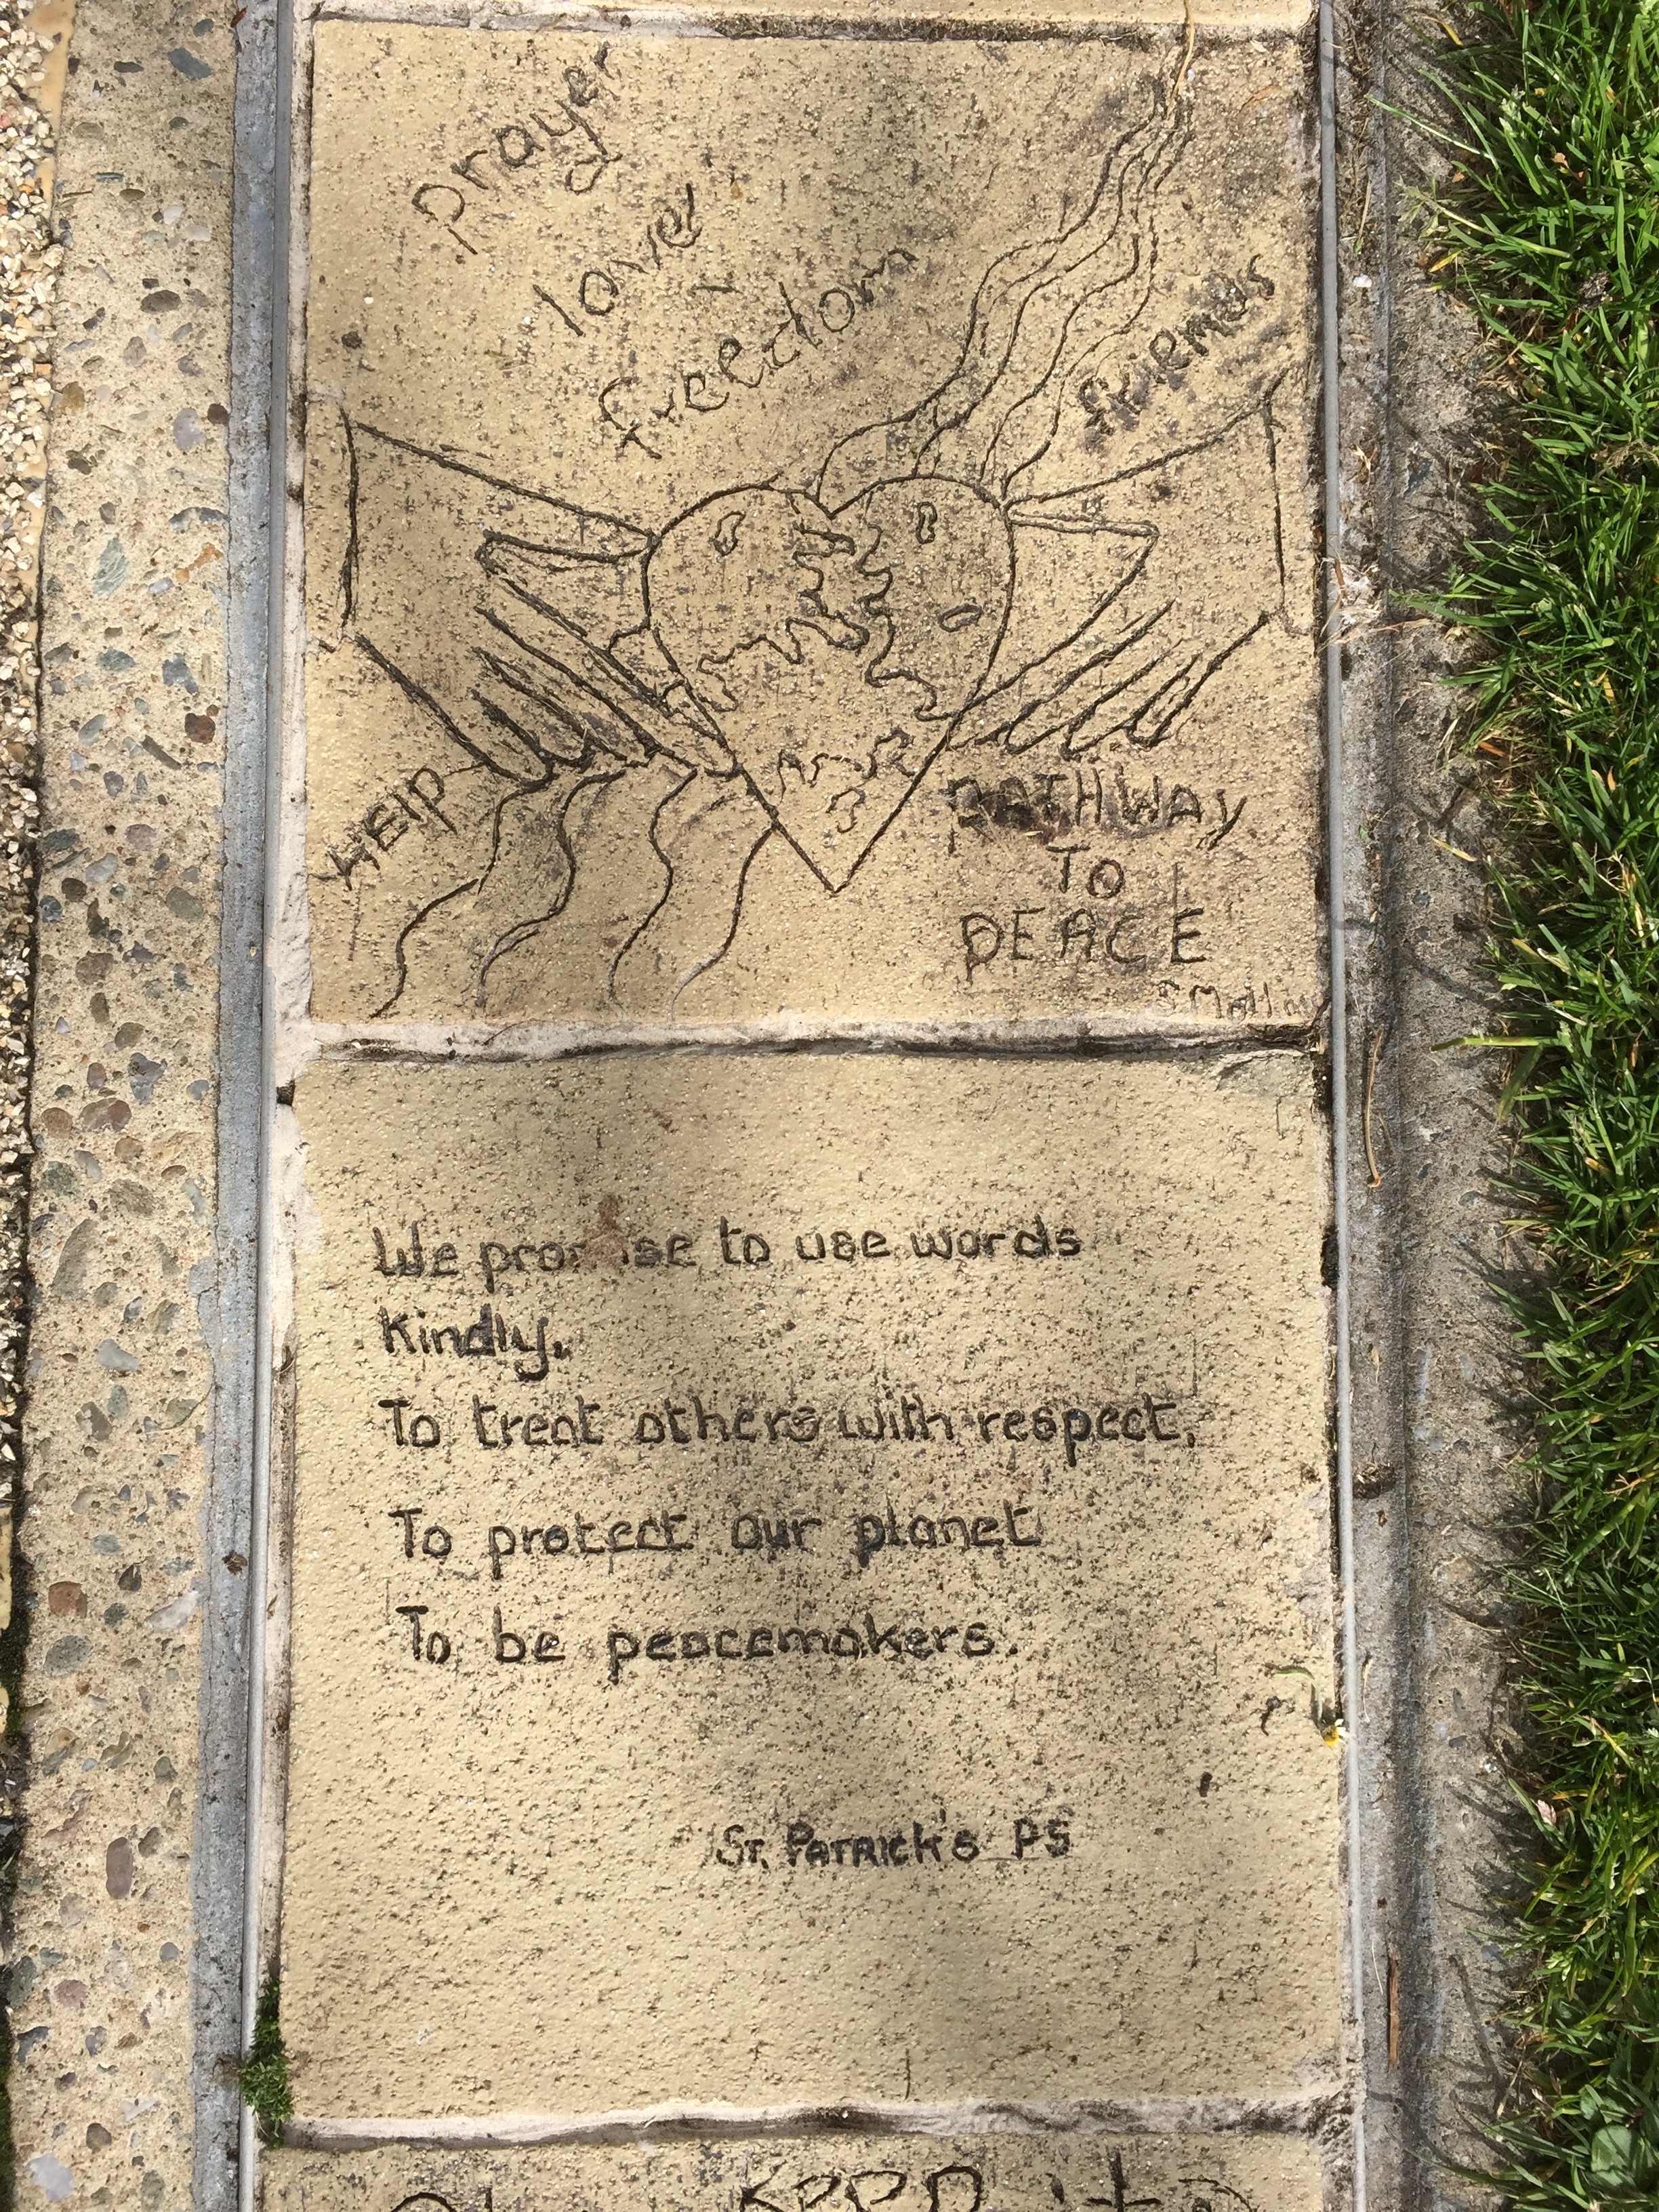 prayer
love
freedom
friends
HElp
PATHWAY
TO
PEACE
We promise to use words
Kindly.
To treat others with respect,
To protect our planet
To be peacemakers.
ST. PATRICK'S PS